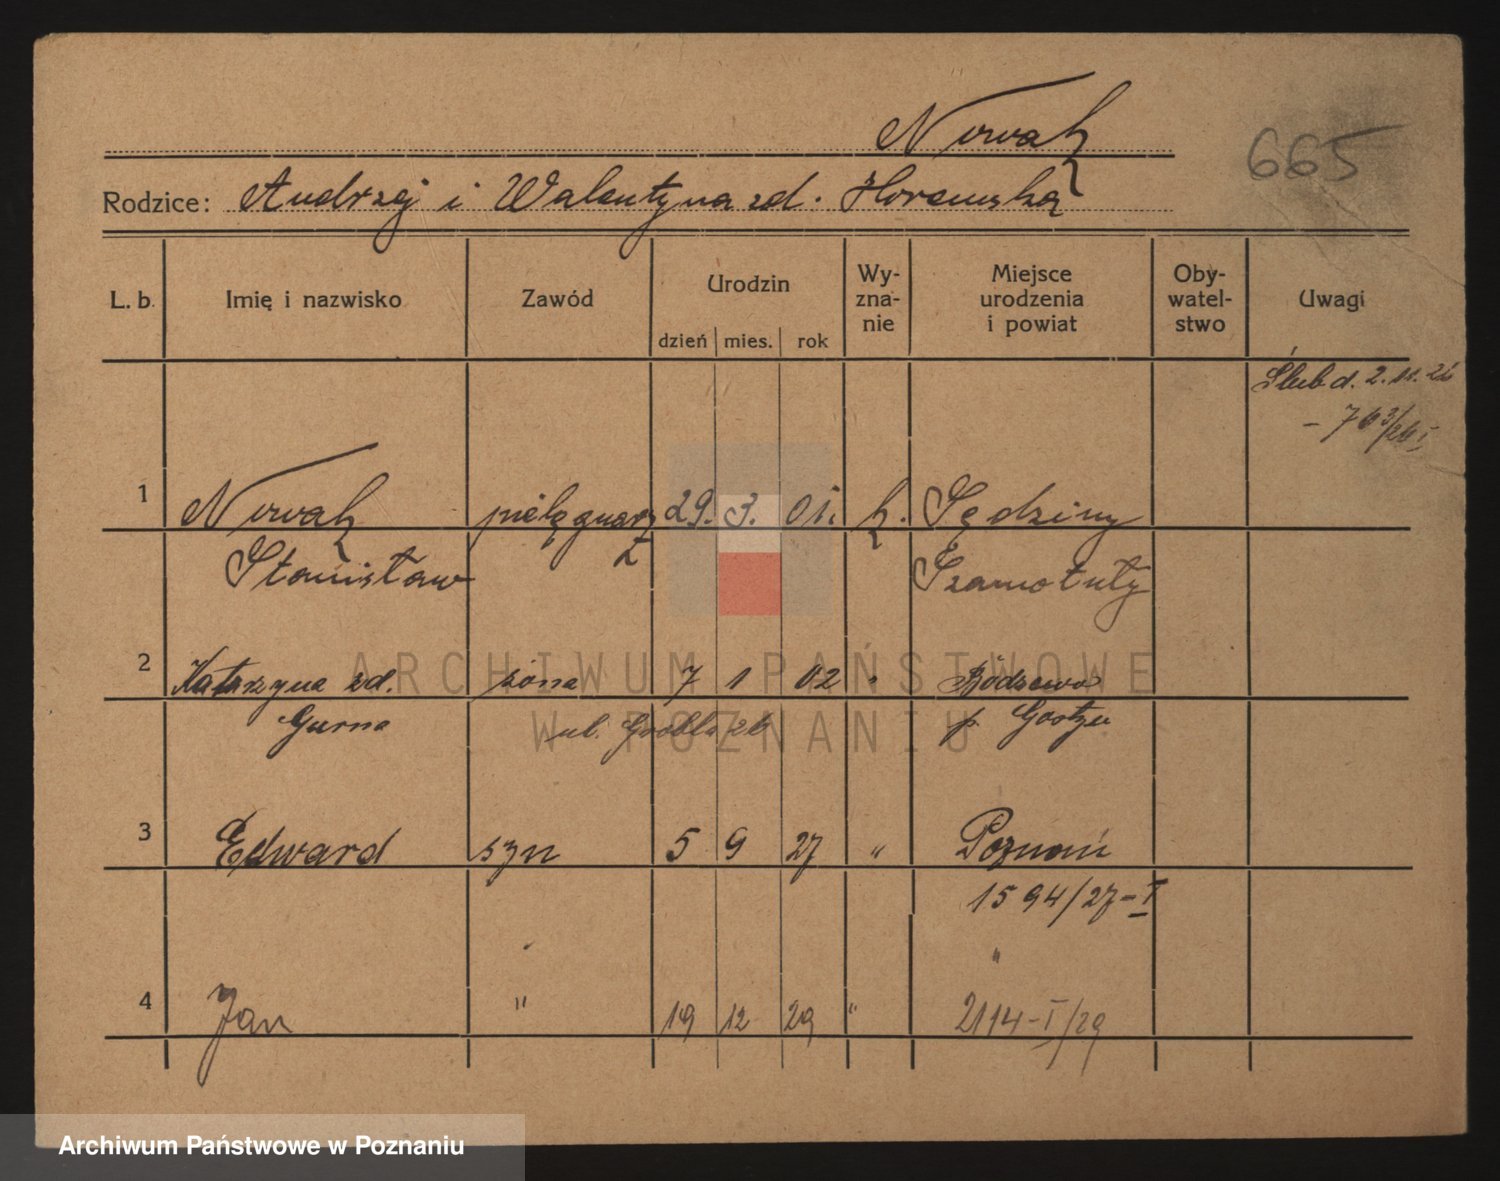 Nowak
665
Rodzice: Andrzej i Walentyna zd. Horemska
L. b. Imię i nazwisko Zawód Urodzin dzień mies. rok Wy-zna-nie Miejsce urodzenia i powiat Oby-watel-stwo Uwagi
Ślub d. 2. 11. 26
- 763/26 I
1 Nowak pielęgniarz 29. 3. 01. k. Sędziny
Stanisław Szamotuły
2 Katarzyna zd. żona 7 1 02 "
Gurna ul. Grobla p. Gostyń
ARCHIWUM PAŃSTWOWE
W POZNANIU
3 Edward syn 5 9 27 " Poznań
1594/27-I
"
4 Jan " 19 12 29 " 2114-I/29
Archiwum Państwowe w Poznaniu